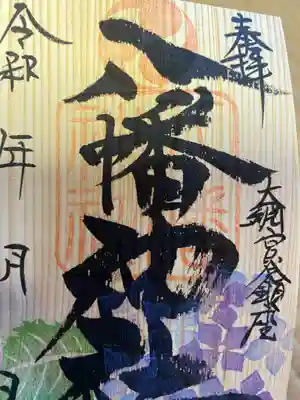 奉拝
大網宮谷鎮座
八幡神社
令和 年 月 日